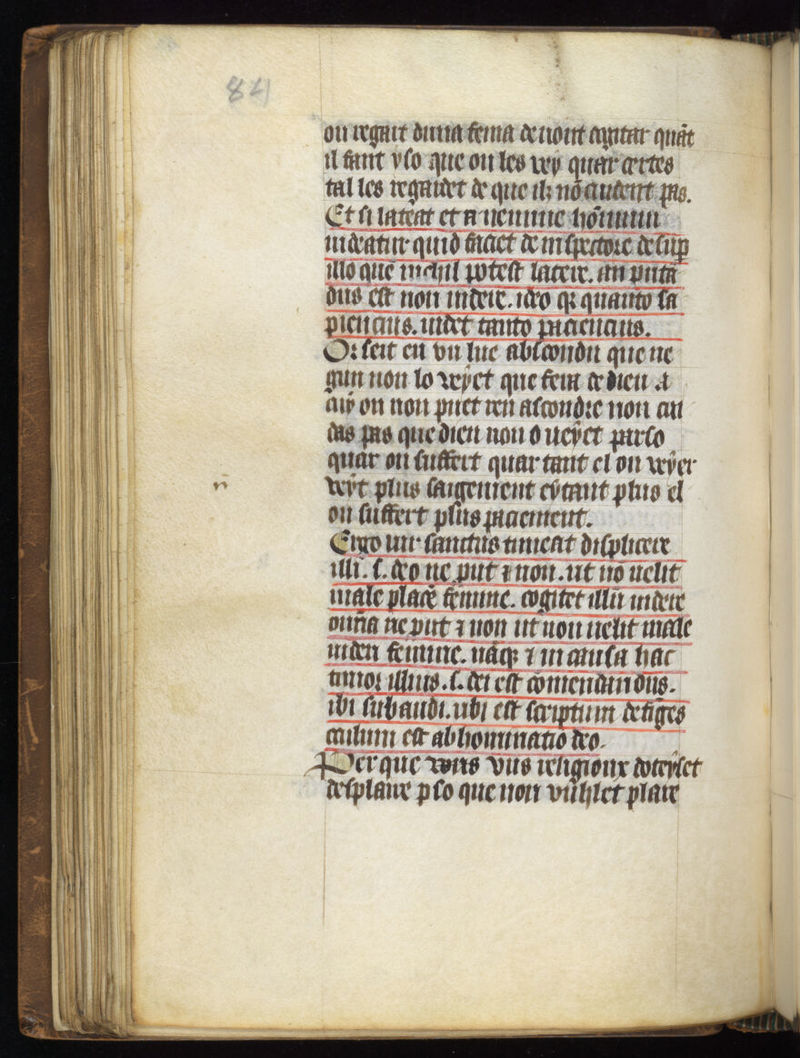 84
ou regart duna fema de nont agitar quāt
il fant vso que on les vey quar certes
tal les regardet de que ilz nō audent pas.
Et si lateat et a nemine hōminum
uideatur quid faciet de inspectore desup
illo quē nichil potest latere. an putā
dus est non uidere. ideo qz quanto sa
piencius. uidet tanto paciencius.
Or seit en vn luc abscondu que ne
gun non lo veyet que fera de dieu a
cuy on non puet ren ascondre non cu
das pas que dieu non o ueyet parso
quar on suffert quar tant el on veyer
veyt plus saigement eytant plus el
on suffert plus paciement.
Ergo uir sanctus timeat displicere
illi. s. deo ne put ⁊ non. ut nō uelit
male placē femine. cogitet illū uidere
omīa ne put ⁊ non ut non uelit male
uideri femine. nāqz ⁊ in causa hac
timor illius. s. dei est cōmendandus.
ibi subaudi. ubi est scriptum defiges
oculum est abhominatio deo.
Per que vous vns religioux doteyset
desplaire p so que non vulhet plaire